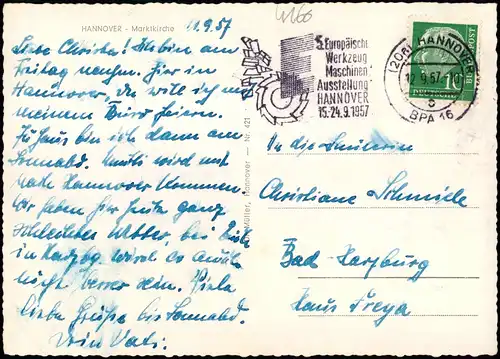 HANNOVER - Marktkirche
11.9.57
Liebe Christa! Ich bin am
Freitag
Hier in
Hannover, da will ich mit
meinem Büro feiern.
Zu Haus bin ich dann am
Sonnabend. Mutti wird mit
nach Hannover kommen.
Wir haben hier heute ganz
schlechtes Wetter, bei Euch
in Harzbg. wird es
besser sein. Viele
liebe Grüße bis Sonnabend.
Dein Vati.
Müller, Hannover - Nr. 421
5. Europäische
Werkzeug
Maschinen
Ausstellung
HANNOVER
15.-24.9.1957
(20a) HANNOVER
12.9.57
5
BPA 16
DEUTSCHE BUNDESPOST
10
An die Schülerin
Christiane Schmiele
Bad Harzburg
Haus Freya